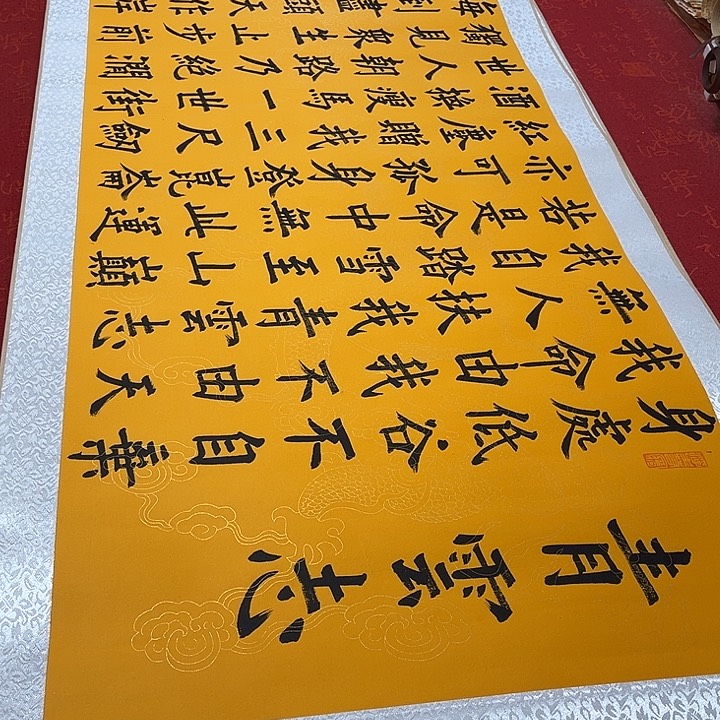 青雲志
身處低谷不自棄
我命由我不由天
無人扶我青雲志
我自踏雪至山巔
若是命中無此運
亦可孤身登崑崙
紅塵贈我三尺劍
酒操瘦馬一世街
世人朝路乃絕渭
獨見眾生止步前
到盡頭天作岸